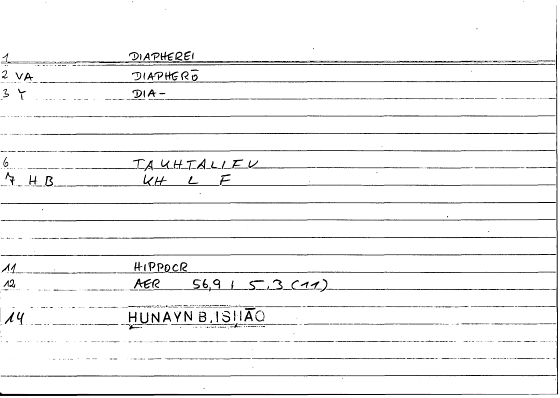 1 DIAPHEREI
2 VA DIAPHERŌ
3 Y DIA-
6 TAKHTALIFU
7 H B KH L F
11 HIPPOCR
12 AER 56,9 ; 5,3 (11)
14 HUNAYN B. ISḤĀQ